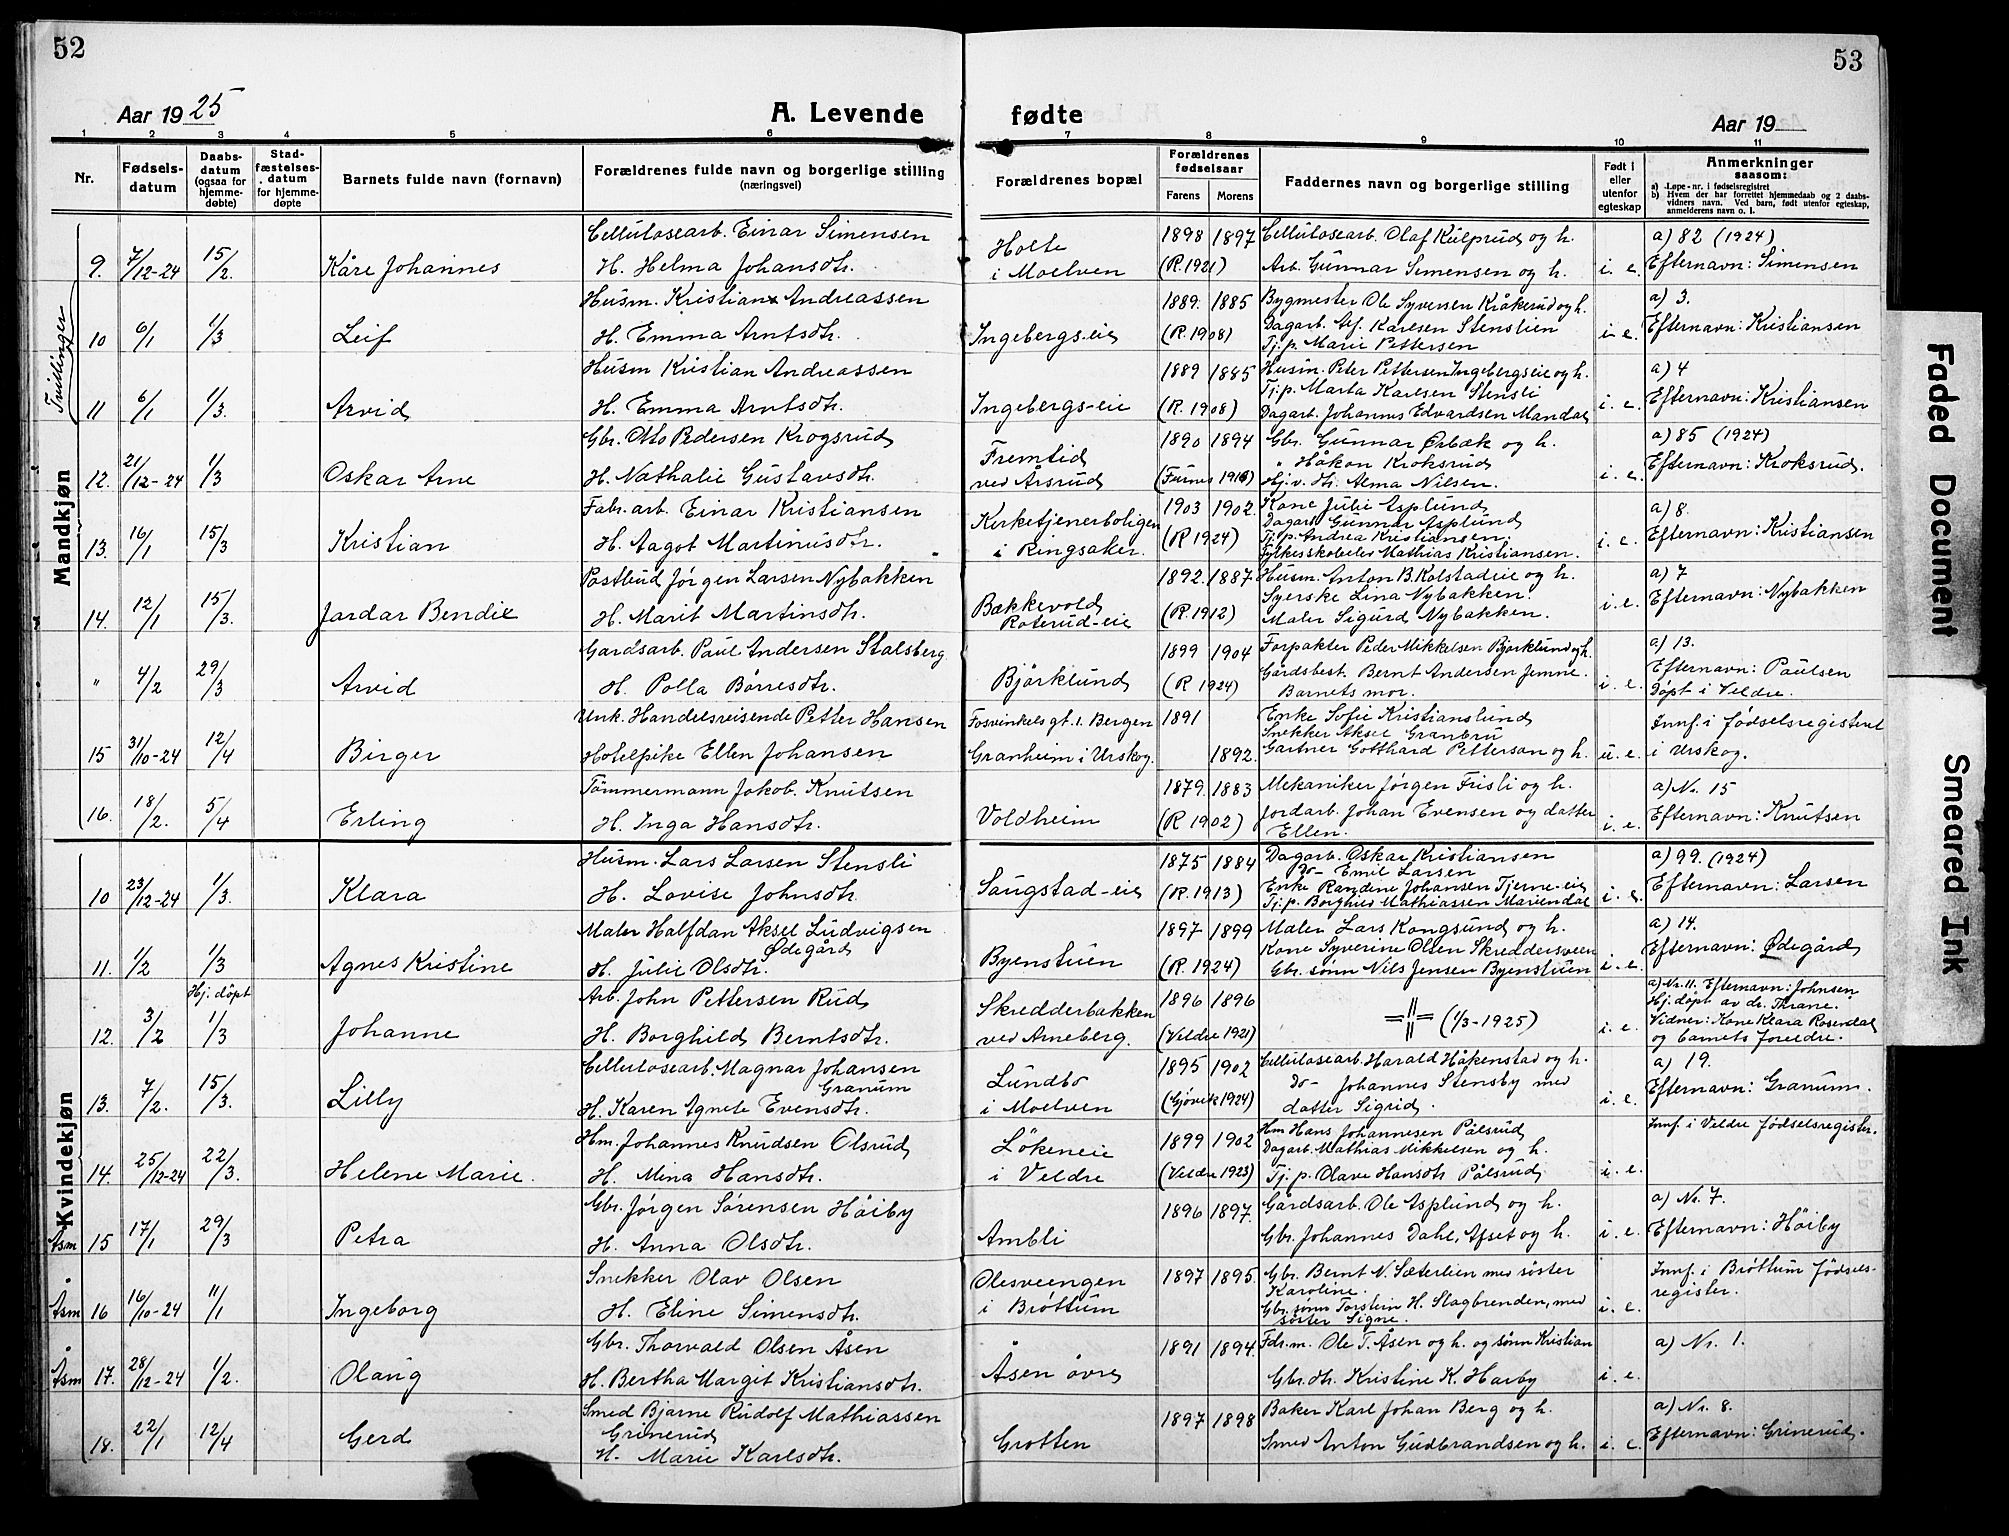 52
53
Aar 1925
A. Levende fødte
Aar 19
1 2 3 4 5 6 7 8 9 10 11
Nr.
Fødsels-datum
Daabs-datum (ogsaa for hjemme-døbte)
Stad-fæstelses-datum for hjemme-døpte
Barnets fulde navn (fornavn)
Forældrenes fulde navn og borgerlige stilling (næringsvei)
Forældrenes bopæl
Forældrenes fødselsaar
Farens Morens
Faddernes navn og borgerlige stilling
Født i eller utenfor egteskap
Anmerkninger saasom:
a) Løpe-nr. i fødselsregistret
b) Hvem der har forrettet hjemmedaab og 2 daabs-vidners navn. Ved barn, født utenfor egteskap, anmelderens navn o. l.
Mandkjøn
Tvillinger
9. 7/12-24 15/2. Kåre Johannes
Cellulosearb. Einar Simensen
H. Helma Johansdtr.
Holte i Moelven
1898 1897 (R. 1921)
Cellulosearb. Olaf Kulprud og h.
Arb. Gunnar Simensen og h.
i. e.
a) 82 (1924)
Efternavn: Simensen
10 6/1 1/3 Leif
Husm. Kristian Andreassen
H. Emma Arntsdtr.
Ingebergs-eie
1889. 1885 (R. 1908)
Bygmester Ole Syversen Kråkerud og h.
Dagarb. Alf. Karlsen Stenslien
Tj.p. Marie Pettersen
i. e.
a) 3.
Efternavn: Kristiansen
11 6/1 1/3. Arvid
Husm Kristian Andreassen
H. Emma Arntsdtr.
Ingebergs-eie
1889 1885 (R. 1908)
Husm. Peter Pettersen Ingebergseie og h.
Tj.p. Marta Karlsen Stensli
Dagarb. Johannes Edvardsen Mandal
i. e.
a) 4
Efternavn: Kristiansen
12. 21/12-24 1/3 Oskar Arne
Gbr. Otto Pedersen Krogsrud
H. Nathalie Gustavsdtr.
Fremtid ved Årsrud
1890 1894 (Furnes 1916)
Gbr. Gunnar Ørbæk og h.
" Håkon Kroksrud
Hj.v. dtr. Alma Nilsen.
i. e.
a) 85 (1924)
Efternavn: Kroksrud.
13. 16/1 15/3 Kristian
Fabr. arb. Einar Kristiansen
H. Aagot Martinusdtr.
Kirketjenerboligen i Ringsaker.
1903 1902. (R 1924)
Kone Julie Asplund
Dagarb. Gunnar Asplund
Tj.p. Andrea Kristiansen
Fylkesskoleelev Mathias Kristiansen.
i. e.
a) 8.
Efternavn: Kristiansen
14. 12/1 15/3. Jardar Bendix
Postbud Jørgen Larsen Nybakken
H. Marit Martinsdtr.
Bækkevold Roterud-eie
1892. 1887 (R. 1912)
Husm. Anton B. Kolstadeie og h.
Syerske Lina Nybakken.
Maler Sigurd Nybakken.
i. e.
a) 7
Efternavn: Nybakken
" 4/2 29/3 Arvid
Gardsarb. Paul Andersen Stalsberg
H. Polla Børresdtr.
Bjørklund
1899 1904 (R 1924)
Forpakter Peder Mikkelsen Bjørklund og h.
Gårdsbest. Bernt Andersen Jemne.
Barnets mor.
i. e.
a) 13.
Efternavn: Paulsen
Døpt i Veldre.
15 31/10-24 12/4 Birger
Unk. Handelsreisende Petter Hansen
Hotelpike Ellen Johansen
Fosvinkels gt. 1. Bergen
Granheim i Urskog.
1891 1892.
Enke Sofie Kristianslund
Snekker Aksel Granbru
Gartner Gotthard Petterson og h.
u. e.
Innf. i fødselsregisteret i Urskog.
16. 18/2. 5/4 Erling
Tømmermann Jakob. Knutsen
H. Inga Hansdtr.
Voldheim
1879. 1883 (R 1902)
Mekaniker Jørgen Frisli og h.
Jordarb. Johan Evensen og datter Ellen.
i. e.
a) Nr. 15
Efternavn: Knutsen
Kvindekjøn
10 23/12-24 1/3. Klara
Husm. Lars Larsen Stensli
H. Lovise Johnsdtr.
Saugstad-eie
1875 1884 (R. 1913)
Dagarb. Oskar Kristiansen
Do- Emil Larsen
Enke Randine Johansen Tjerne-eie
Tj.p. Borghild Mathiassen Mariendal
i. e.
a) 99. (1924)
Efternavn: Larsen
11. 1/2 1/3 Agnes Kristine
Maler Halfdan Aksel Ludvigsen Ødegård
H. Julie Olsdtr.
Byenstuen
1897 1899 (R. 1924)
Maler Lars Kongsund og h.
Kone Syverine Olsen Skreddersveen
Gbr. sønn Nils Jensen Byenstuen
i. e.
a) 14.
Efternavn: Ødegård
12. 3/2 Hj. døpt 1/3 Johanne
Arb. John Pettersen Rud
H. Borghild Berntsdtr.
Skredderbakken ved Arneberg.
1896 1896 (Veldre 1921)
(1/3-1925)
i. e.
a) Nr. 11. Efternavn: Johnsen
Hj. døpt av dr. Thrane.
Vidner: Kone Klara Rosendal og barnets foreldre.
13. 7/2. 15/3. Lilly
Cellulosearb. Magnar Johansen Granum
H. Karen Agnete Evensdtr.
Lundbo i Moelven
1895 1902 (Gjøvik 1924)
Cellulosearb. Harald Håkenstad og h.
Do- Johannes Stensby med datter Sigrid.
i. e.
a) 19.
Efternavn: Granum.
14. 25/12-24 22/3. Helene Marie.
Hm. Johannes Knudsen Olsrud
H. Mina Hansdtr.
Løkeneie i Veldre
1899 1902 (Veldre 1923)
Hm Hans Johannesen Pålsrud
Dagarb. Mathias Mikkelsen og h.
Tj. p. Olave Hansdtr Pålsrud
i. e.
Innf. i Veldre fødselsregister.
Åsm 15 17/1 29/3 Petra
Gbr. Jørgen Sørensen Høiby
H. Anna Olsdtr.
Ambli
1896 1897.
Gårdsarb. Ole Asplund og h.
Gbr. Johannes Dahl, Afset og h.
i. e.
a) Nr. 7.
Efternavn: Høiby
Åsm 16 16/10-24 11/1 Ingeborg
Snekker Olav Olsen
H. Eline Simensdtr.
Olesveengen i Brøttum
1897 1895.
Gbr. Bernt N. Sæterlien med søster Karoline.
Gbr. sønn Torstein H. Slagbrenden, med søster Signe.
i. e.
Innf. i Brøttum fødsels-register.
Åsm 17. 28/12-24 1/2. Olaug
Gbr. Thorvald Olsen Åsen
H. Bertha Margit Kristiansdtr.
Åsen øvre
1891 1894.
Fdr.m. Ole T. Åsen og h. og sønn Kristian
Gbr. dtr. Kristine K. Harby
i. e.
a) Nr. 1.
18. 22/1 12/4 Gerd
Smed Bjarne Rudolf Mathiassen Grinerud
H. Marie Karlsdtr.
Grotten
1897 1898
Baker Karl Johan Berg og h.
Smed Anton Gudbrandsen og h.
i. e.
a) Nr. 8.
Efternavn: Grinerud.
Faded Document
Smeared Ink